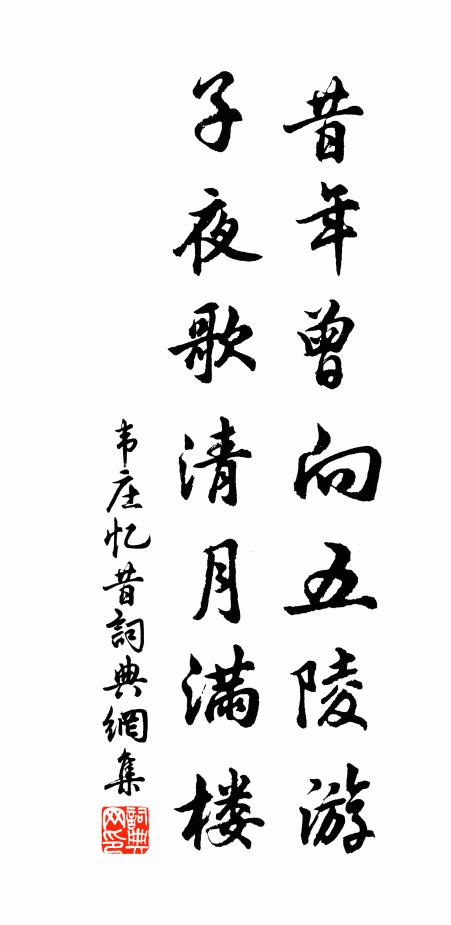 昔年曾向五陵游
子夜歌清月满楼
韦庄忆昔詞典網集
詞典网印